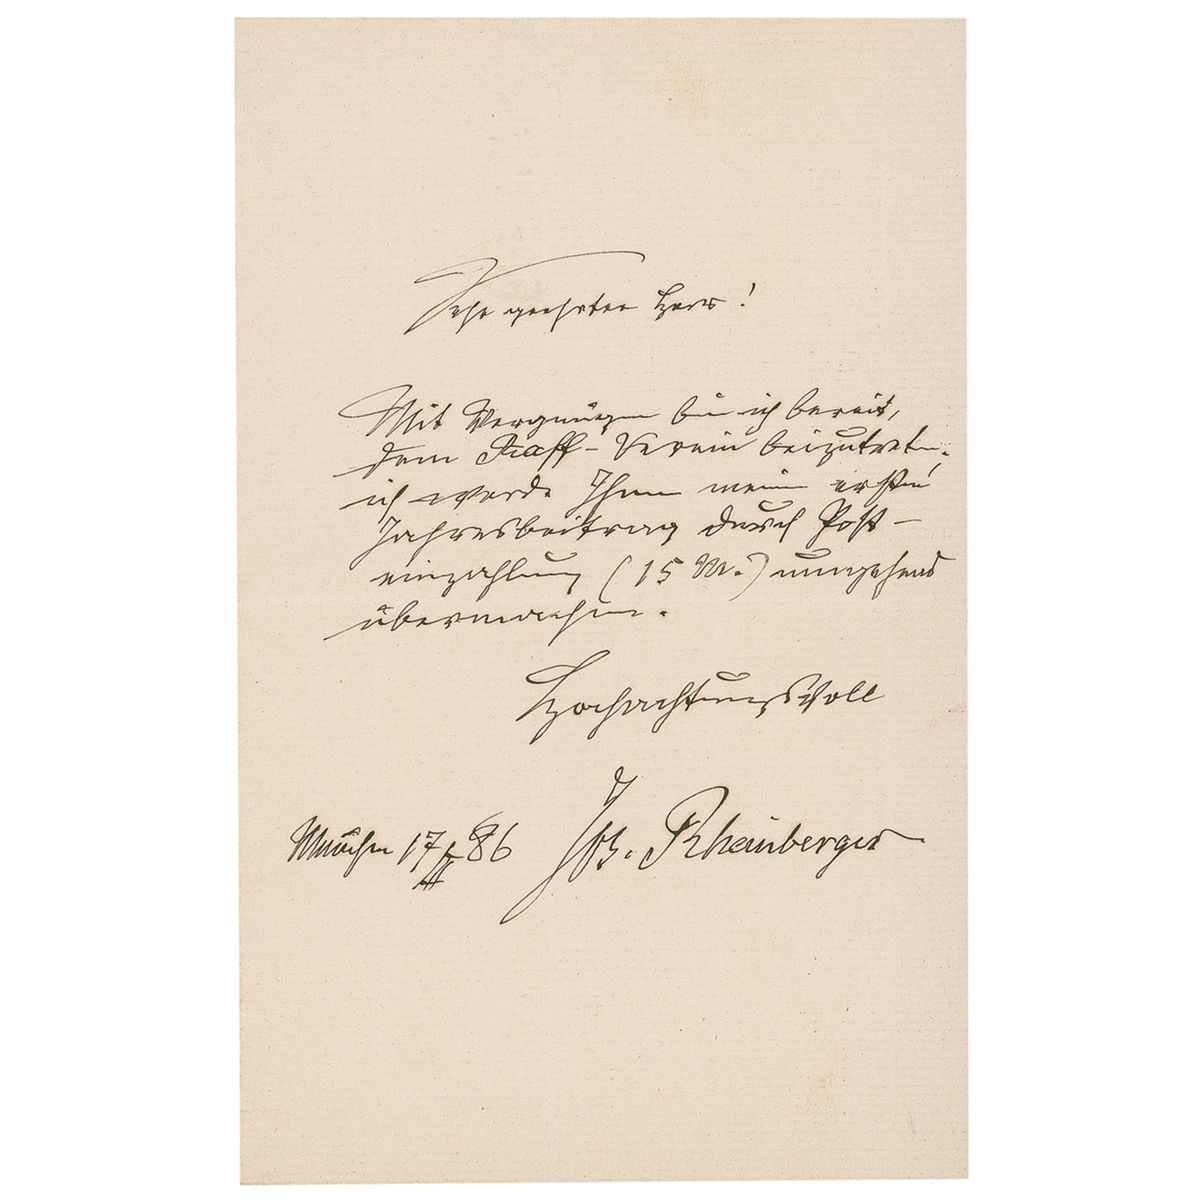 Sehr geehrter Herr!
Mit Vergnügen bin ich bereit,
dem Raff-Verein beizutreten.
ich werde Ihnen meinen ersten
Jahresbeitrag durch Post-
einzahlung (15 M.) umgehend
übermachen.
Hochachtungsvoll
München 17/II 86 Jos. Rheinberger